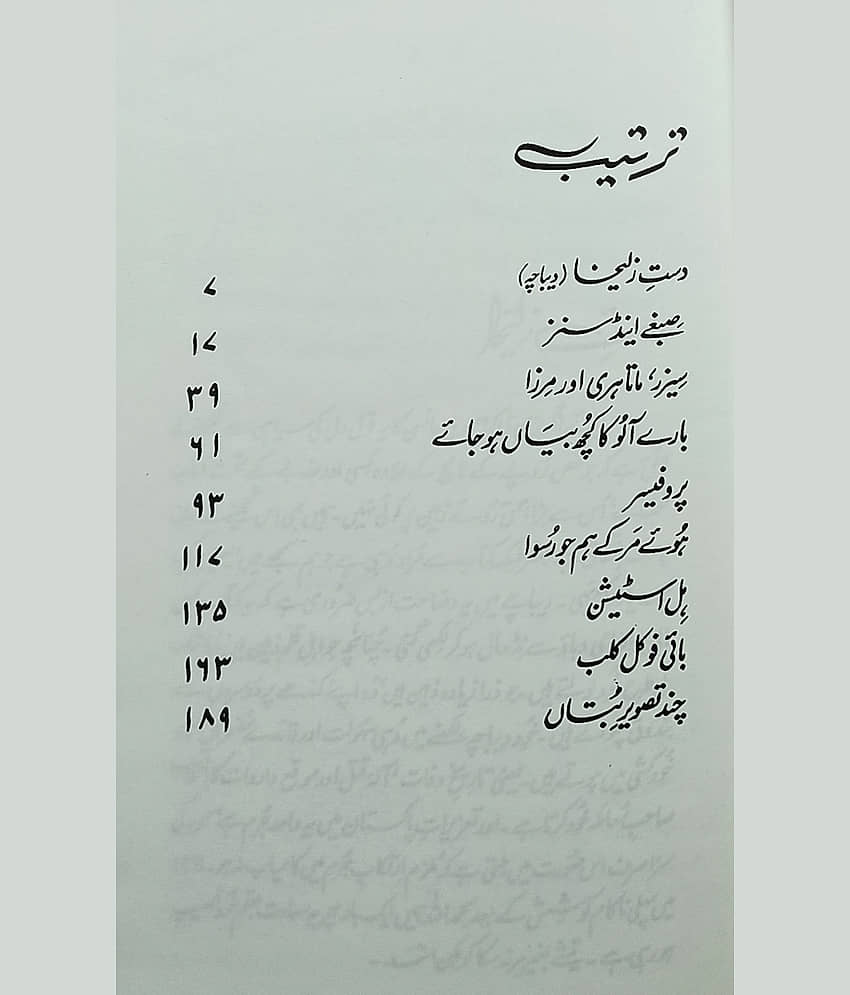 ترتیب
دستِ زلیخا (دیباچہ) ۷
صبغے اینڈ سنز ۱۷
سیزر، ماتا ہری اور مرزا ۳۹
بارے آلُو کا کُچھ بیَاں ہو جائے ۶۱
پروفیسر ۹۳
ہُوئے مَر کے ہم جو رُسوا ۱۱۷
ہِل اسٹیشن ۱۳۵
بائی فوکل کلب ۱۶۳
چند تصویرِ بُتاں ۱۸۹